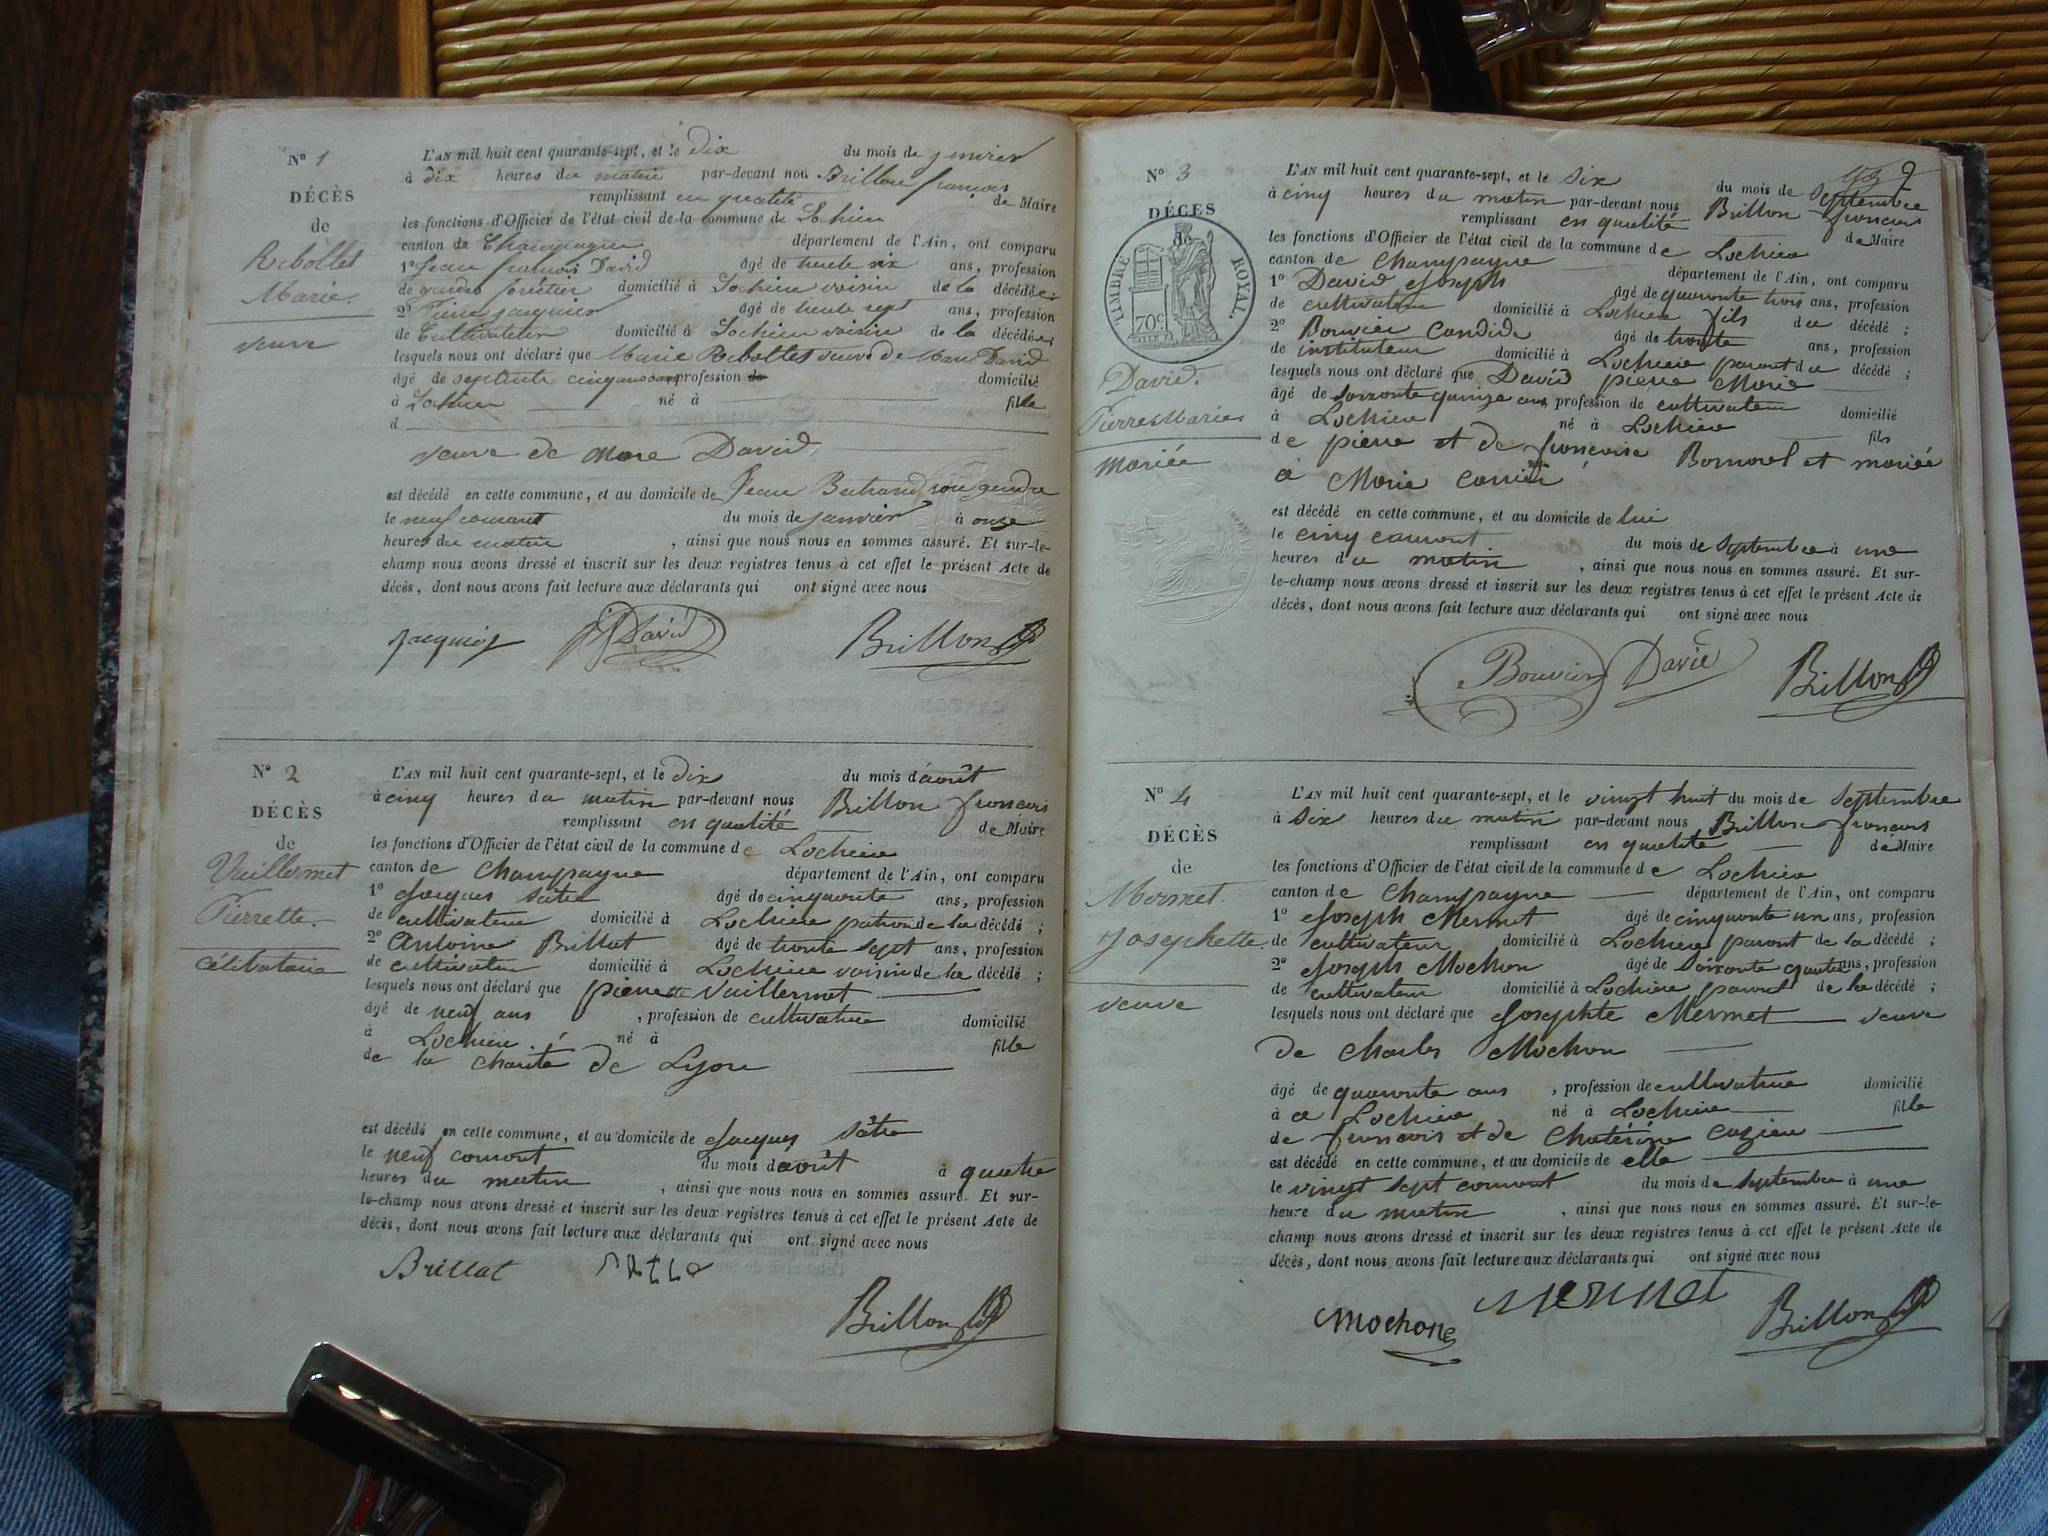 Nº 1
DÉCÈS
de
Rebollet
Marie.
veuve
L'AN mil huit cent quarante-sept, et le dix du mois de janvier
à dix heures du matin par-devant nous Brillon françois
remplissant en qualité de Maire
les fonctions d'Officier de l'état civil de la commune de Lochieu
canton de Champagne département de l'Ain, ont comparu
1º Jean françois David âgé de trente six ans, profession
de gardes forêtier domicilié à Lochieu voisin de la décédée;
2º Pierre Jacquier âgé de trente sept ans, profession
de Cultivateur domicilié à Lochieu voisin de la décédée;
lesquels nous ont déclaré que Marie Rebollet veuve de Marc David
âgé de septente cinq ans profession de domicilié
à Lochieu né à fille
d
veuve de Marc David
est décédé en cette commune, et au domicile de Jean Bertrand son gendre
le neuf courant du mois de janvier à onze
heures du matin, ainsi que nous nous en sommes assuré. Et sur-le-
champ nous avons dressé et inscrit sur les deux registres tenus à cet effet le présent Acte de
décès, dont nous avons fait lecture aux déclarants qui ont signé avec nous
Jacquier David Brillon
Nº 2
DÉCÈS
de
Vuillermet
Pierrette.
célibataire
L'AN mil huit cent quarante-sept, et le dix du mois d'août
à cinq heures du matin par-devant nous Brillon françois
remplissant en qualité de Maire
les fonctions d'Officier de l'état civil de la commune de Lochieu
canton de Champagne département de l'Ain, ont comparu
1º Jacques Sâtre âgé de cinquante ans, profession
de cultivateur domicilié à Lochieu patron de la décédé;
2º Antoine Brillat âgé de trente sept ans, profession
de cultivateur domicilié à Lochieu voisin de la décédé;
lesquels nous ont déclaré que pierrette Vuillermet
âgé de neuf ans, profession de cultivatrice domicilié
à Lochieu né à fille
de la charité de Lyon
est décédé en cette commune, et au domicile de Jacques Sâtre
le neuf courant du mois d'août à quatre
heures du matin, ainsi que nous nous en sommes assuré. Et sur-
le-champ nous avons dressé et inscrit sur les deux registres tenus à cet effet le présent Acte de
décès, dont nous avons fait lecture aux déclarants qui ont signé avec nous
Brillat
Brillon
Nº 3
DÉCÈS
de
TIMBRE ROYAL.
70c
David.
Pierre Marie
mariée
L'AN mil huit cent quarante-sept, et le six du mois de septembre
à cinq heures du matin par-devant nous Brillon françois
remplissant en qualité de Maire
les fonctions d'Officier de l'état civil de la commune de Lochieu
canton de Champagne département de l'Ain, ont comparu
1º David Joseph âgé de quarante trois ans, profession
de cultivateur domicilié à Lochieu fils du décédé;
2º Bouvier Candide âgé de trente ans, profession
de instituteur domicilié à Lochieu parent du décédé;
lesquels nous ont déclaré que David pierre Marie
âgé de soixonte quinze ans, profession de cultivateur domicilié
à Lochieu né à Lochieu fils
de pierre et de françoise Bornarel et mariée
a Marie
est décédé en cette commune, et au domicile de lui
le cinq courant du mois de septembre à une
heures du matin, ainsi que nous nous en sommes assuré. Et sur-
le-champ nous avons dressé et inscrit sur les deux registres tenus à cet effet le présent Acte de
décès, dont nous avons fait lecture aux déclarants qui ont signé avec nous
Bouvier David Brillon
Nº 4
DÉCÈS
de
Mermet.
Josephette.
veuve
L'AN mil huit cent quarante-sept, et le vingt huit du mois de septembre
à six heures du matin par-devant nous Brillon françois
remplissant en qualité de Maire
les fonctions d'Officier de l'état civil de la commune de Lochieu
canton de Champagne département de l'Ain, ont comparu
1º Joseph Mermet âgé de cinquante un ans, profession
de cultivateur domicilié à Lochieu parent de la décédé;
2º Joseph Mochon âgé de soixonte quatre ans, profession
de cultivateur domicilié à Lochieu parent de la décédé;
lesquels nous ont déclaré que Josephte Mermet veuve
de Charles Mochon
âgé de quaronte ans, profession de cultivatrice domicilié
à a Lochieu né à Lochieu fille
de françois et de Chatérine Cuzieu
est décédé en cette commune, et au domicile de elle
le vingt sept courant du mois de septembre à une
heure du matin, ainsi que nous nous en sommes assuré. Et sur-le-
champ nous avons dressé et inscrit sur les deux registres tenus à cet effet le présent Acte de
décès, dont nous avons fait lecture aux déclarants qui ont signé avec nous
Mochon Mermet Brillon